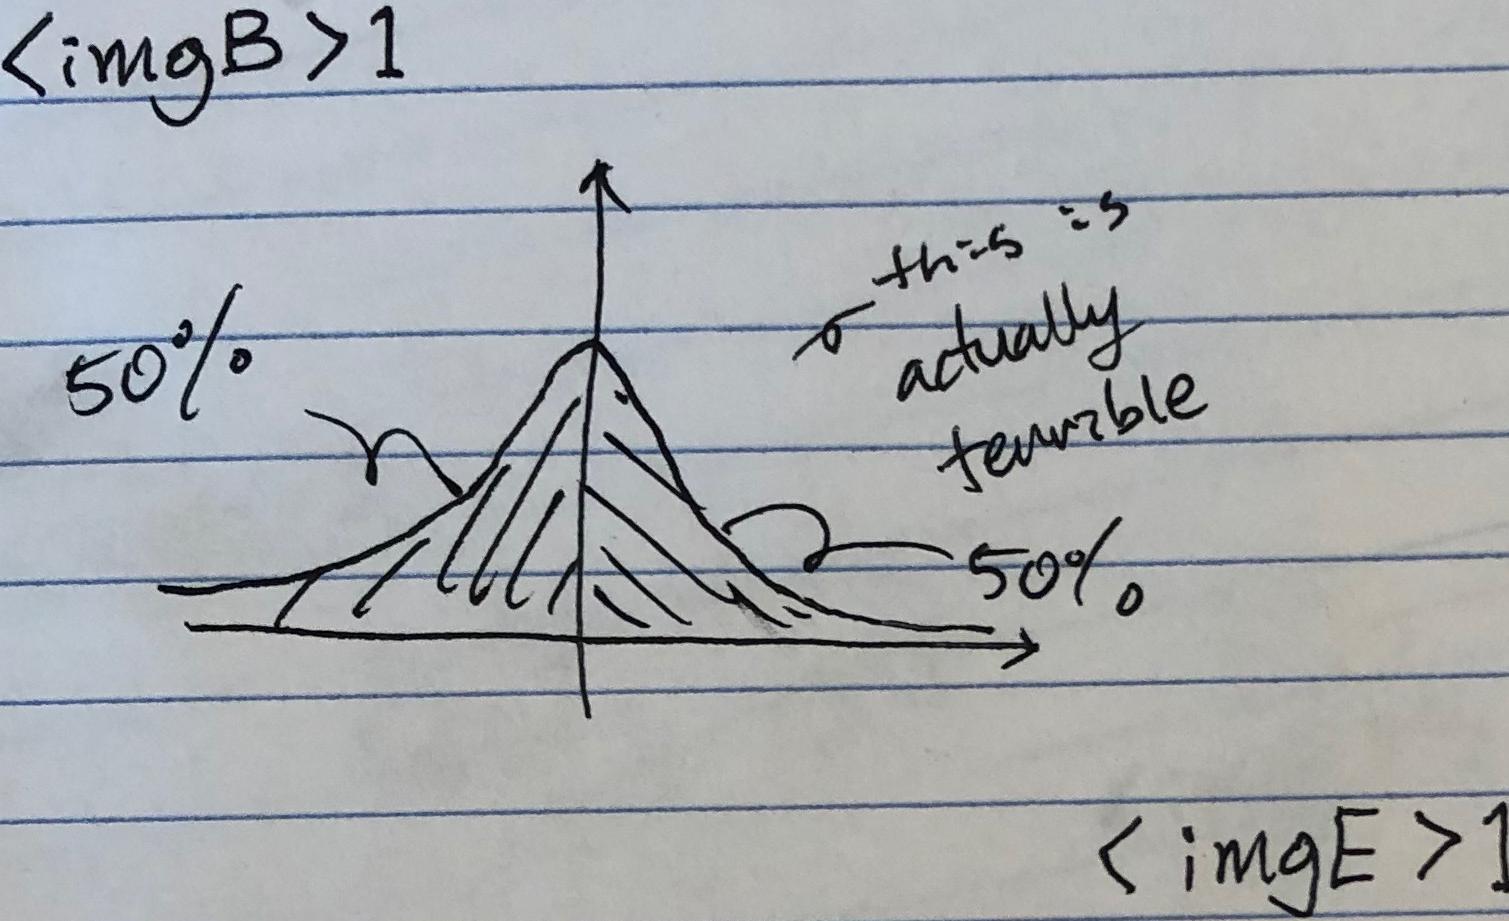 <imgB>1
this is
actually
terrible
50%
50%
<imgE>1